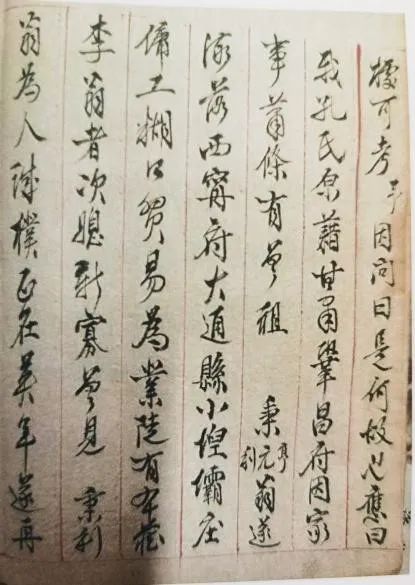 據可考予因問曰是何故也應曰
我孔氏原籍甘肅鞏昌府因家
事蕭條有曾祖秉元亨利翁遂
流落西寧府大通縣小堭壩庄
傭工糊口貿易為業陡有本莊
李翁者次媳新寡曾見秉利
翁為人誠樸正在英年遂再